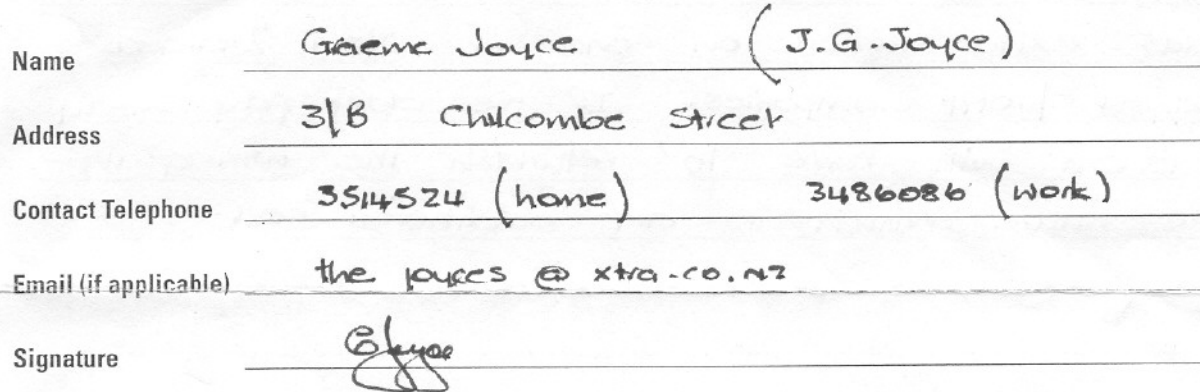 Name Graeme Joyce (J.G. Joyce)
Address 31B Chilcombe Street
Contact Telephone 3514524 (home) 3486086 (work)
Email (if applicable) the joyces @ xtra.co.nz
Signature